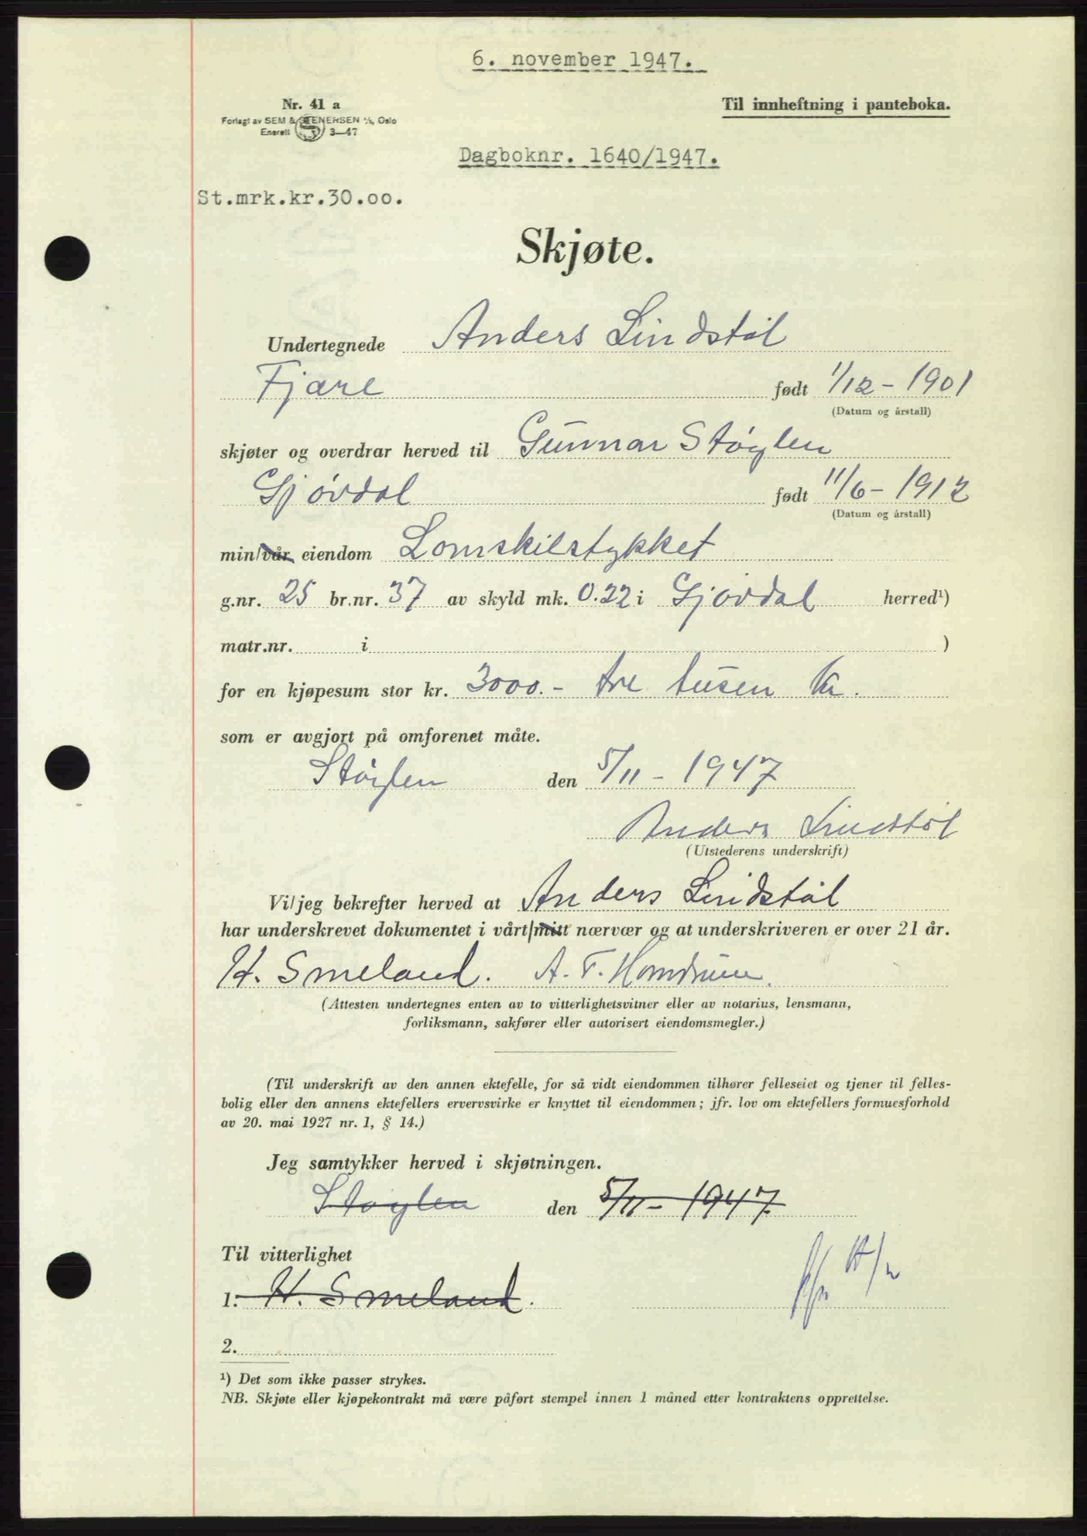 6. november 1947.
Nr. 41 a
Til innheftning i panteboka.
Forlagt av SEM & STENERSEN A/S, Oslo
Enerett 3—47
Dagboknr. 1640/1947.
St.mrk.kr.30.oo.
Skjøte.
Undertegnede Anders Lindstøl
Fjære født 1/12 - 1901
(Datum og årstall)
skjøter og overdrar herved til Gunnar Støylen
Gjøvdal født 11/6 - 1912
(Datum og årstall)
min/vår eiendom Lomskilstykket
g.nr. 25 br.nr. 37 av skyld mk. 0.22 i Gjøvdal herred¹)
matr.nr. i )
for en kjøpesum stor kr. 3000.- tre tusen kr.
som er avgjort på omforenet måte.
Støylen den 5/11 - 1947
Anders Lindstøl
(Utstederens underskrift)
Vi/jeg bekrefter herved at Anders Lindstøl
har underskrevet dokumentet i vårt/mitt nærvær og at underskriveren er over 21 år.
H. Smeland. A. T. Homdrum.
(Attesten undertegnes enten av to vitterlighetsvitner eller av notarius, lensmann,
forliksmann, sakfører eller autorisert eiendomsmegler.)
(Til underskrift av den annen ektefelle, for så vidt eiendommen tilhører felleseiet og tjener til felles-
bolig eller den annens ektefellers ervervsvirke er knyttet til eiendommen; jfr. lov om ektefellers formuesforhold
av 20. mai 1927 nr. 1, § 14.)
Jeg samtykker herved i skjøtningen.
Støylen den 5/11 - 1947
Til vitterlighet
1. H. Smeland.
2.
¹) Det som ikke passer strykes.
NB. Skjøte eller kjøpekontrakt må være påført stempel innen 1 måned etter kontraktens opprettelse.